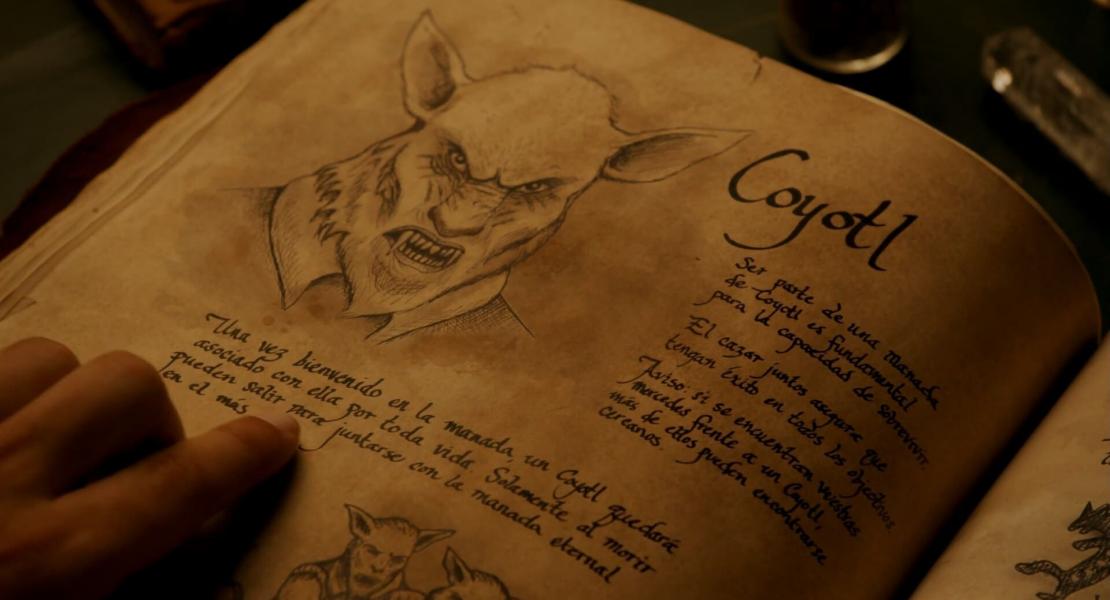 Coyotl
Ser parte de una manada
de Coyotl es fundamental
para la capacidas de sobrevivir.
El cazar juntos asegura que
tengan éxito en todos los objectivos
Aviso: si se encuentran
mercedes frente a un Coyotl,
más de ellos puedan encontrarse
cercanos.
Una vez bienvenido en la manada, un Coyotl quedará
asociado con ella por toda vida. Solamente al morir
pueden salir para juntarse con la manada eternal
en el más